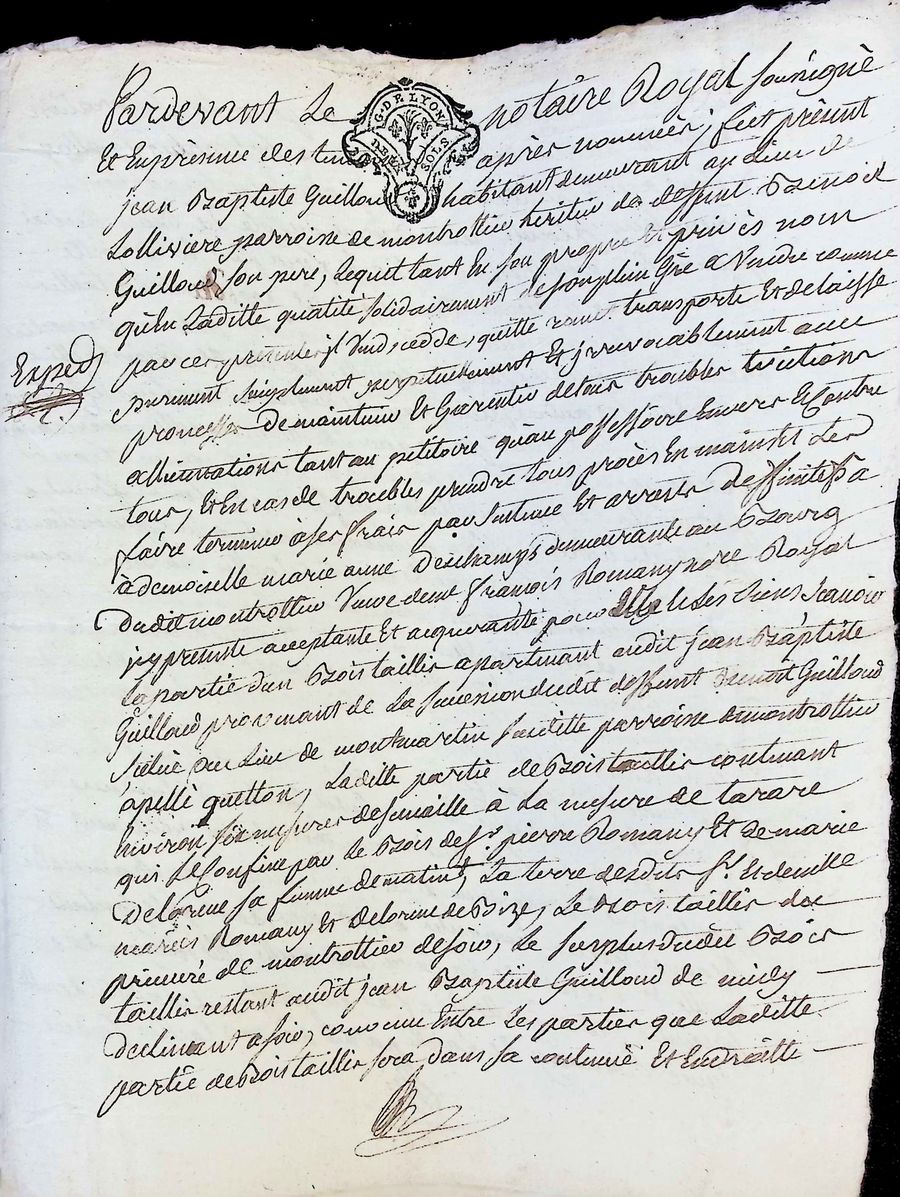 Pardevant Le notaire Royal soussigné
G.DE LYON
DEUX SOLS
Et En présence des tém après nommés, fut présent
jean Baptiste Guilloud habitant demeurant au Lieu de
Lolliviere parroisse de montrottier héritier de deffunt Benoit
Guilloud son pere, Lequel tant En son propre et privés nom
qu'En Laditte qualité solidairement de son plein Gré a Vendu comme
par ces présentes il Vend, cedde, quitte remet transporte Et delaisse
Exped
purement simplement perpetuellement Et jrrevocablement avec
promesses De maintenir Et Garentir de tous troubles Evictions
tant au petitoire qu'au possessoire Envers Et Contre
tous, Et En cas de troubles prendre tous procès En main Et Les
faire terminer à ses frais par sentence Et arrests deffinitifs a
à demoiselle marie anne Deschamps demeurante au Bourg
dudit montrottier Veuve de me François Romany nore Royal
jcy présente acceptante Et acquerante pour Elle & Les siens sçavoir
La partie d'un Bois taillis apartenant audit jean Baptiste
Guilloud provenant de La succession dudit deffunt benoit Guilloud
scitué au Lieu de montmartin susditte parroisse de montrottier
apellé quetton, Laditte partie de Bois taillis contenant
Environ six mesures de semaille à La mesure de tarare
qui se confine par Le Bois de sr. pierre Romany Et de marie
Delorme sa femme de matin, La terre desdits sr. Et demlle
mariés Romany Et Delorme de Bize, Le Bois taillis du
prieuré de montrottier de soir, Le surplus dudit Bois
taillis restant audit jean Baptiste Guilloud de midy
declinant a soir, convenu Entre Les parties que Laditte
partie de Bois taillis sera dans sa contenuë Et En droitte